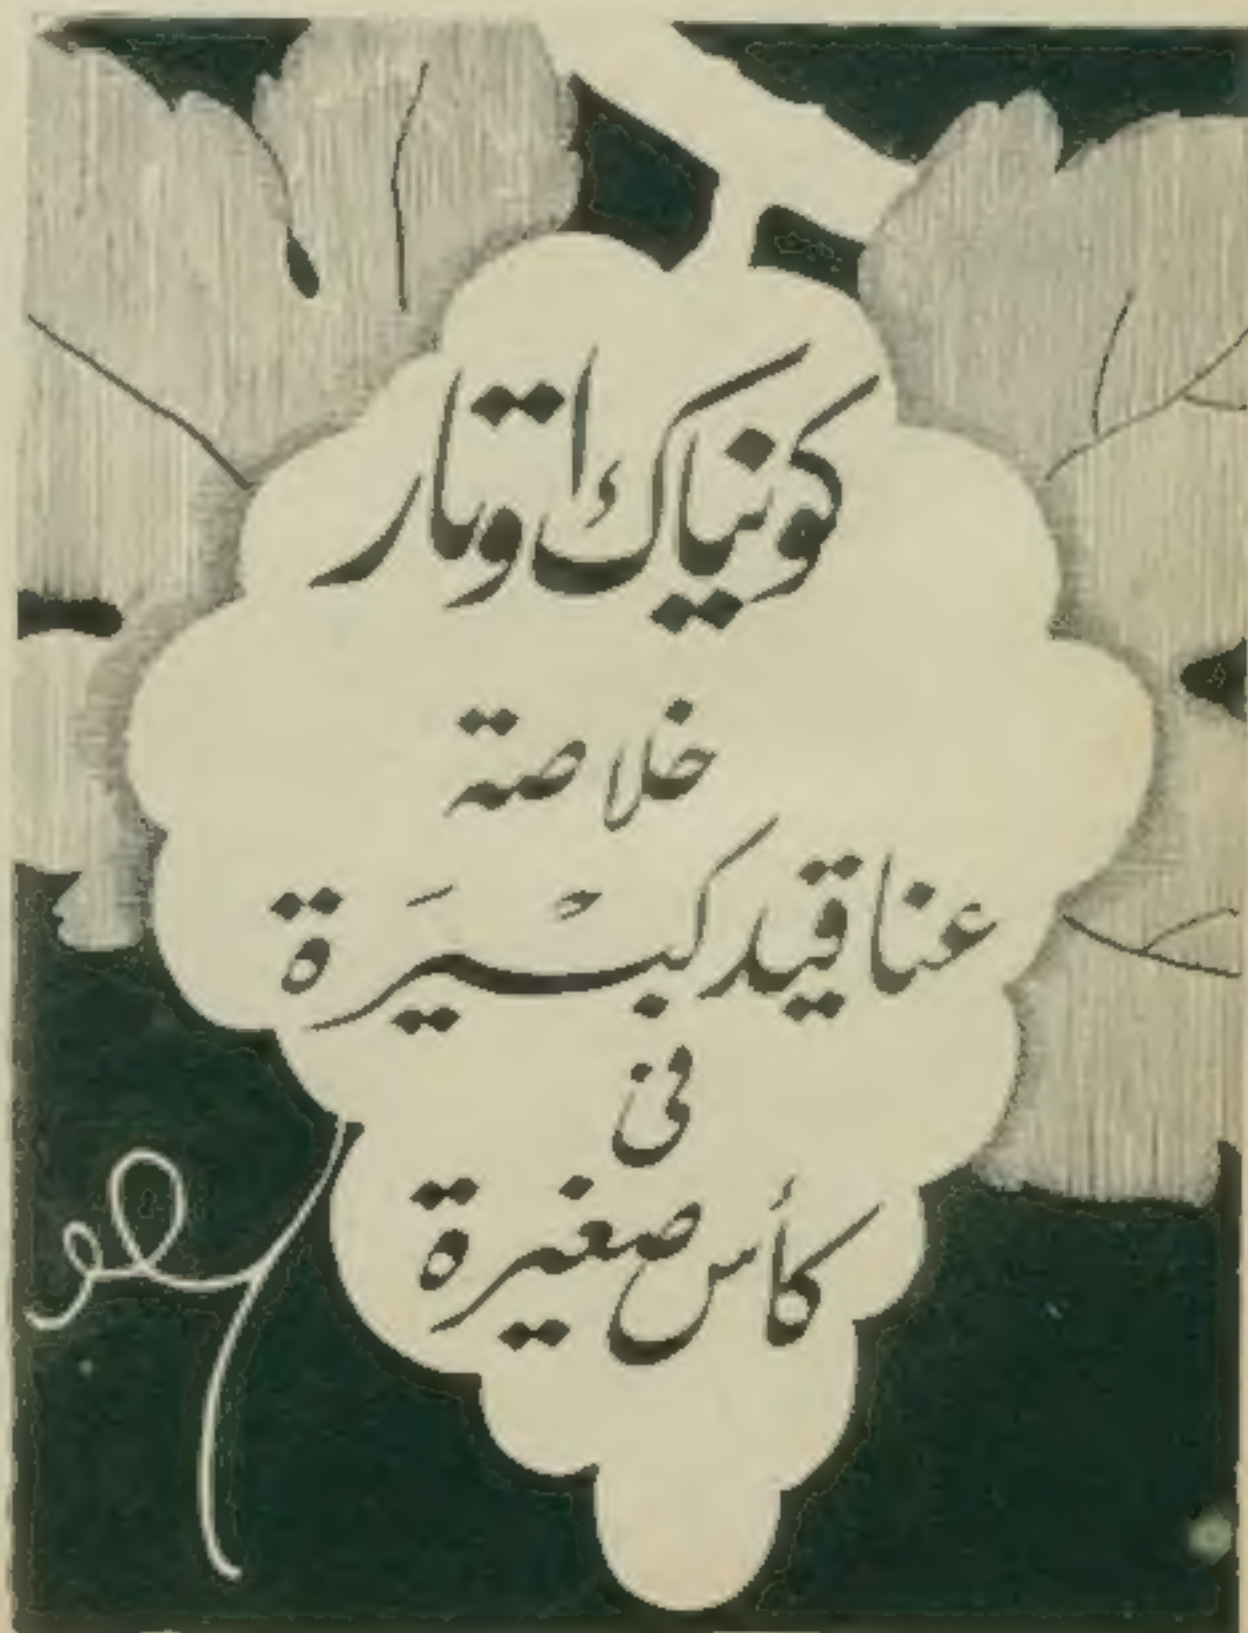 كونياك اوتار
خلاصة
عناقيد كبيرة
في
كأس صغيرة